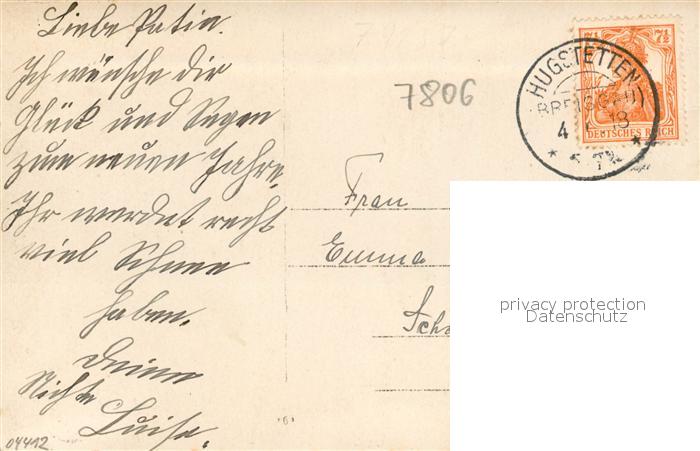 Liebe Patin.
Ich wünsche dir
Glück und Segen
zum neuen Jahre,
Ihr werdet recht
viel Schnee
haben.
Deine
Nichte
Luise.
04412
7806
HUGSTETTEN
(BREISGAU)
4
18
7½ 7½
DEUTSCHES REICH
Frau
Emma
Sch
6
privacy protection
Datenschutz